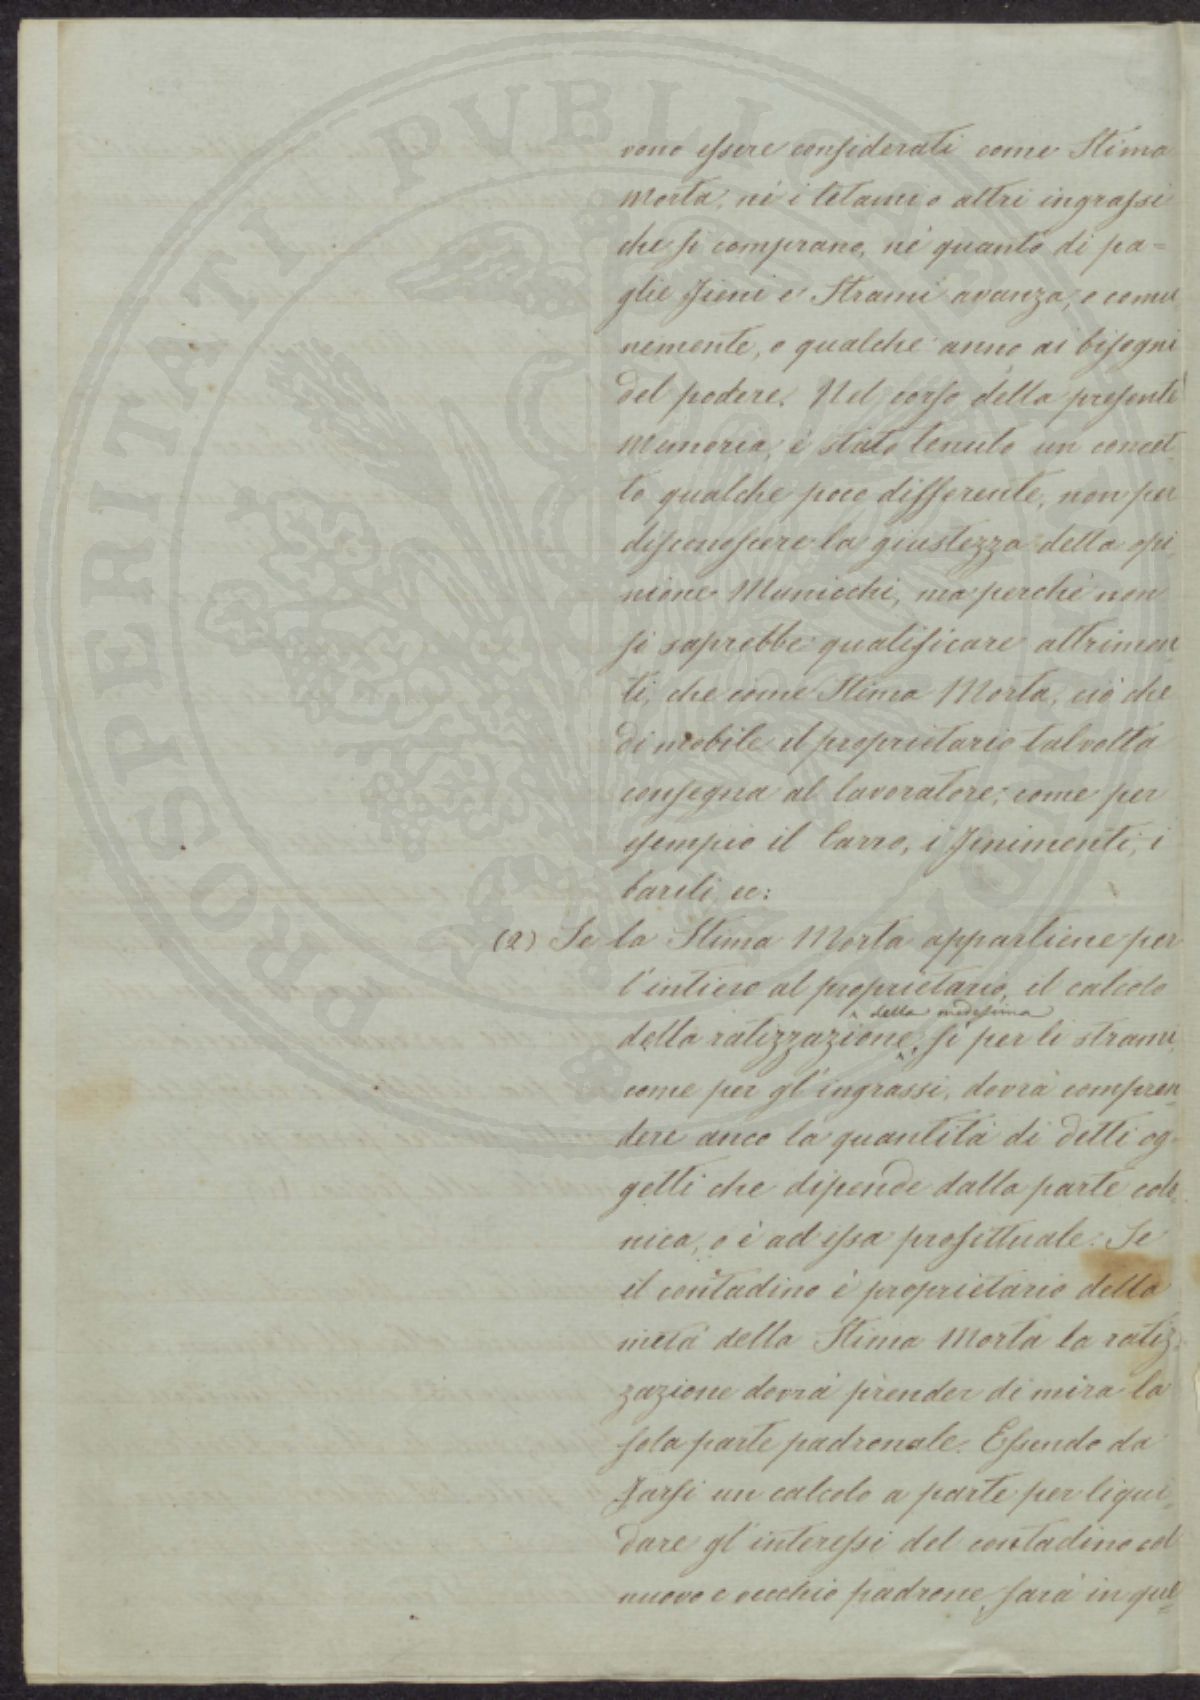 vono essere considerati come Stima
Morta, nè i letami o altri ingrassi
che si comprano, nè quanto di pa=
glie fieni e Strami avanza, o comu
nemente, o qualche anno ai bisogni
del podere. Nel corso della presente
Memoria, è stato tenuto un concet-
to qualche poco differente, non per
disconoscere la giustezza della opi
nione Municchi, ma perchè non
si saprebbe qualificare altrimen
ti, che come Stima Morta, ciò che
di mobile il proprietario talvolta
consegna al lavoratore; come per
esempio il Carro, i finimenti, i
barili, ec:
(2) Se la Stima Morta appartiene per
l'intiero al proprietario, il calcolo
della medesima
della ratizzazione, sì per li strami
come per gl'ingrassi, dovrà compren
dere anco la quantità di detti og-
getti che dipende dalla parte colo=
nica, o è ad essa profittuale. Se
il contadino è proprietario della
metà della Stima Morta la ratiz=
zazione dovrà prender di mira la
sola parte padronale. Essendo da
farsi un calcolo a parte per liqui=
dare gl'interessi del contadino col
nuovo e vecchio padrone, sarà in que=
PROSPERITATI PVBLICAE AVGENDAE